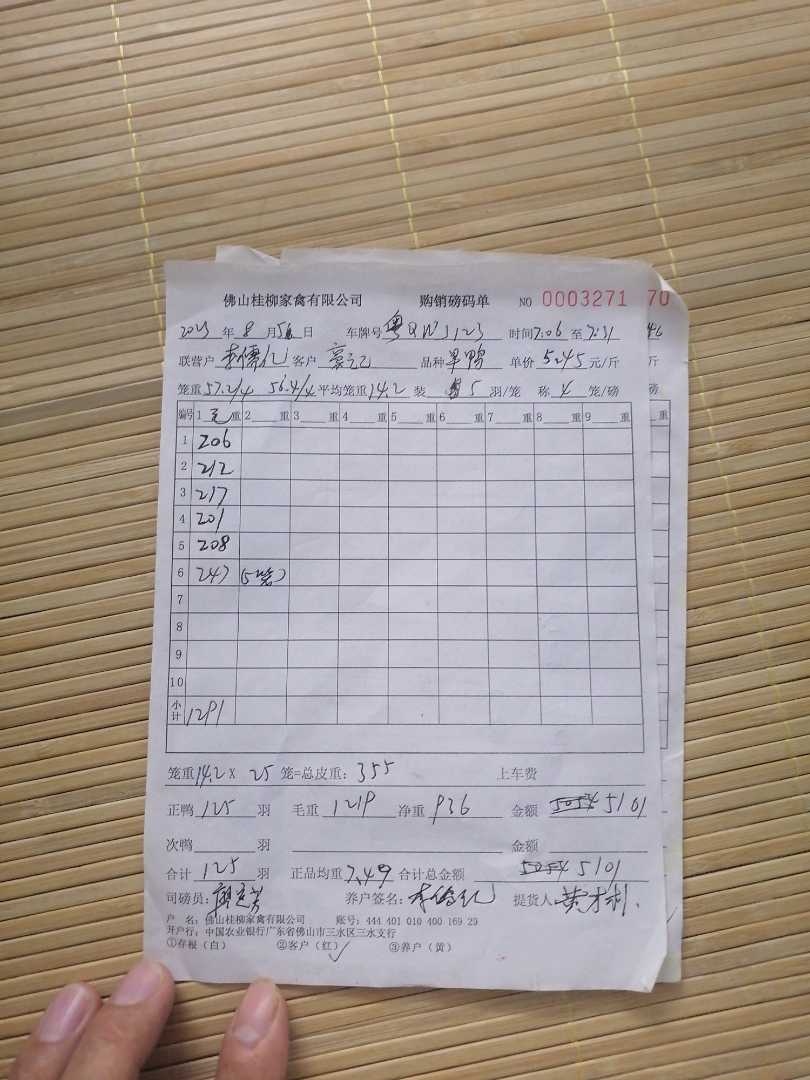 佛山桂柳家禽有限公司 购销磅码单 NO 0003271 70
2023年8月5日 车牌号粤QWJ123 时间7:06至7:31 46
联营户 客户 品种旱鸭 单价5.45元/斤 斤
笼重57.2/4 56.4/4平均笼重14.2装5羽/笼 称4笼/磅 磅
编号 1毛重 2 重 3 重 4 重 5 重 6 重 7 重 8 重 9 重 重
1 206
2 212
3 217
4 201
5 208
6 247 (5笼)
7
8
9
10
小计 1291
笼重14.2 X 25笼=总皮重:355 上车费
正鸭125羽 毛重1219 净重936 金额5054 5101
次鸭 羽 金额
合计125羽 正品均重7.49合计总金额5054 5101
司磅员: 养户签名: 提货人
户 名:佛山桂柳家禽有限公司 账号:444 401 010 400 169 29
开户行:中国农业银行广东省佛山市三水区三水支行
①存根(白) ②客户(红)✓ ③养户(黄)